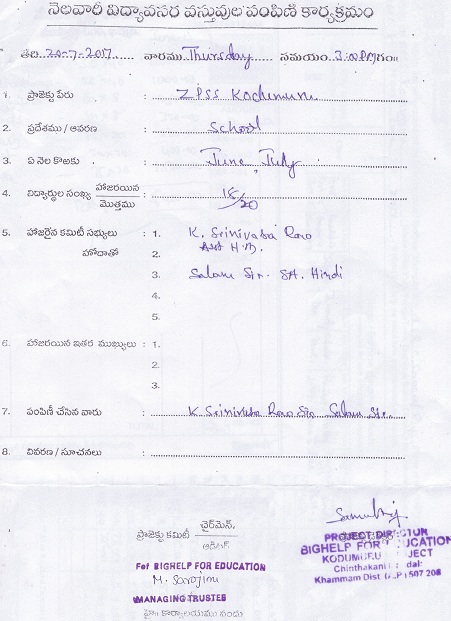 నెలవారీ విద్యావసర వస్తువుల పంపిణీ కార్యక్రమం
తేది. 20-7-2017 వారము Thursday సమయం 3:00 PM గం॥
1. ప్రాజెక్టు పేరు : ZPSS Kodumuru
2. ప్రదేశము / ఆవరణ : School
3. ఏ నెల కొఱకు : June, July
4. విద్యార్థుల సంఖ్య హాజరయిన / మొత్తము : 18/20
5. హాజరైన కమిటీ సభ్యులు : 1. K. Srinivasa Rao
హోదాతో 2. Asst H.M.
3. Salam Sir. SA. Hindi
4.
5.
6. హాజరయిన ఇతర ముఖ్యులు : 1.
2.
3.
7. పంపిణీ చేసిన వారు : K Srinivasa Rao Sir Salam Sir.
8. వివరణ / సూచనలు :
ప్రాజెక్టు కమిటీ ఛైర్మెన్.
ఆడిటర్
For BIGHELP FOR EDUCATION
M. Sarojini
MANAGING TRUSTEE
హై॥ కార్యాలయము నందు
PROJECT DIRECTOR
BIGHELP FOR EDUCATION
KODUMURU PROJECT
Chinthakani dal:
Khammam Dist (A.P) 507 208